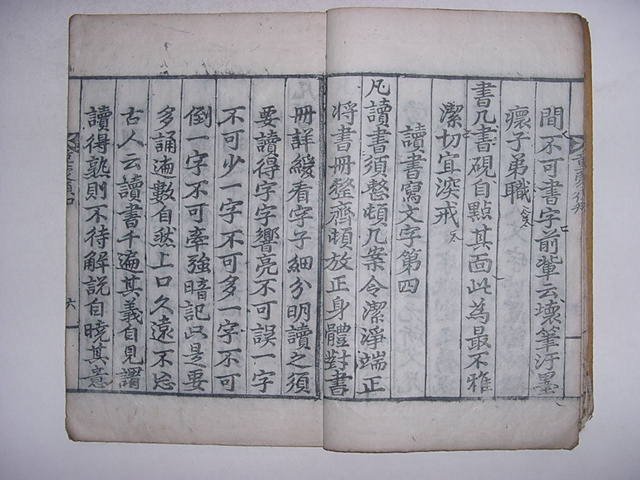 間不可書字前輩云壞筆汙墨
瘝子弟職
書几書硯自點其面此為最不雅
潔切宜深戒
讀書寫文字第四
凡讀書須整頓几案令潔淨端正
將書冊整齊頓放正身體對書
冊詳緩看字子細分明讀之須
要讀得字字響亮不可誤一字
不可少一字不可多一字不可
倒一字不可牽強暗記只是要
多誦遍數自然上口久遠不忘
古人云讀書千遍其義自見謂
讀得熟則不待解說自曉其意
六